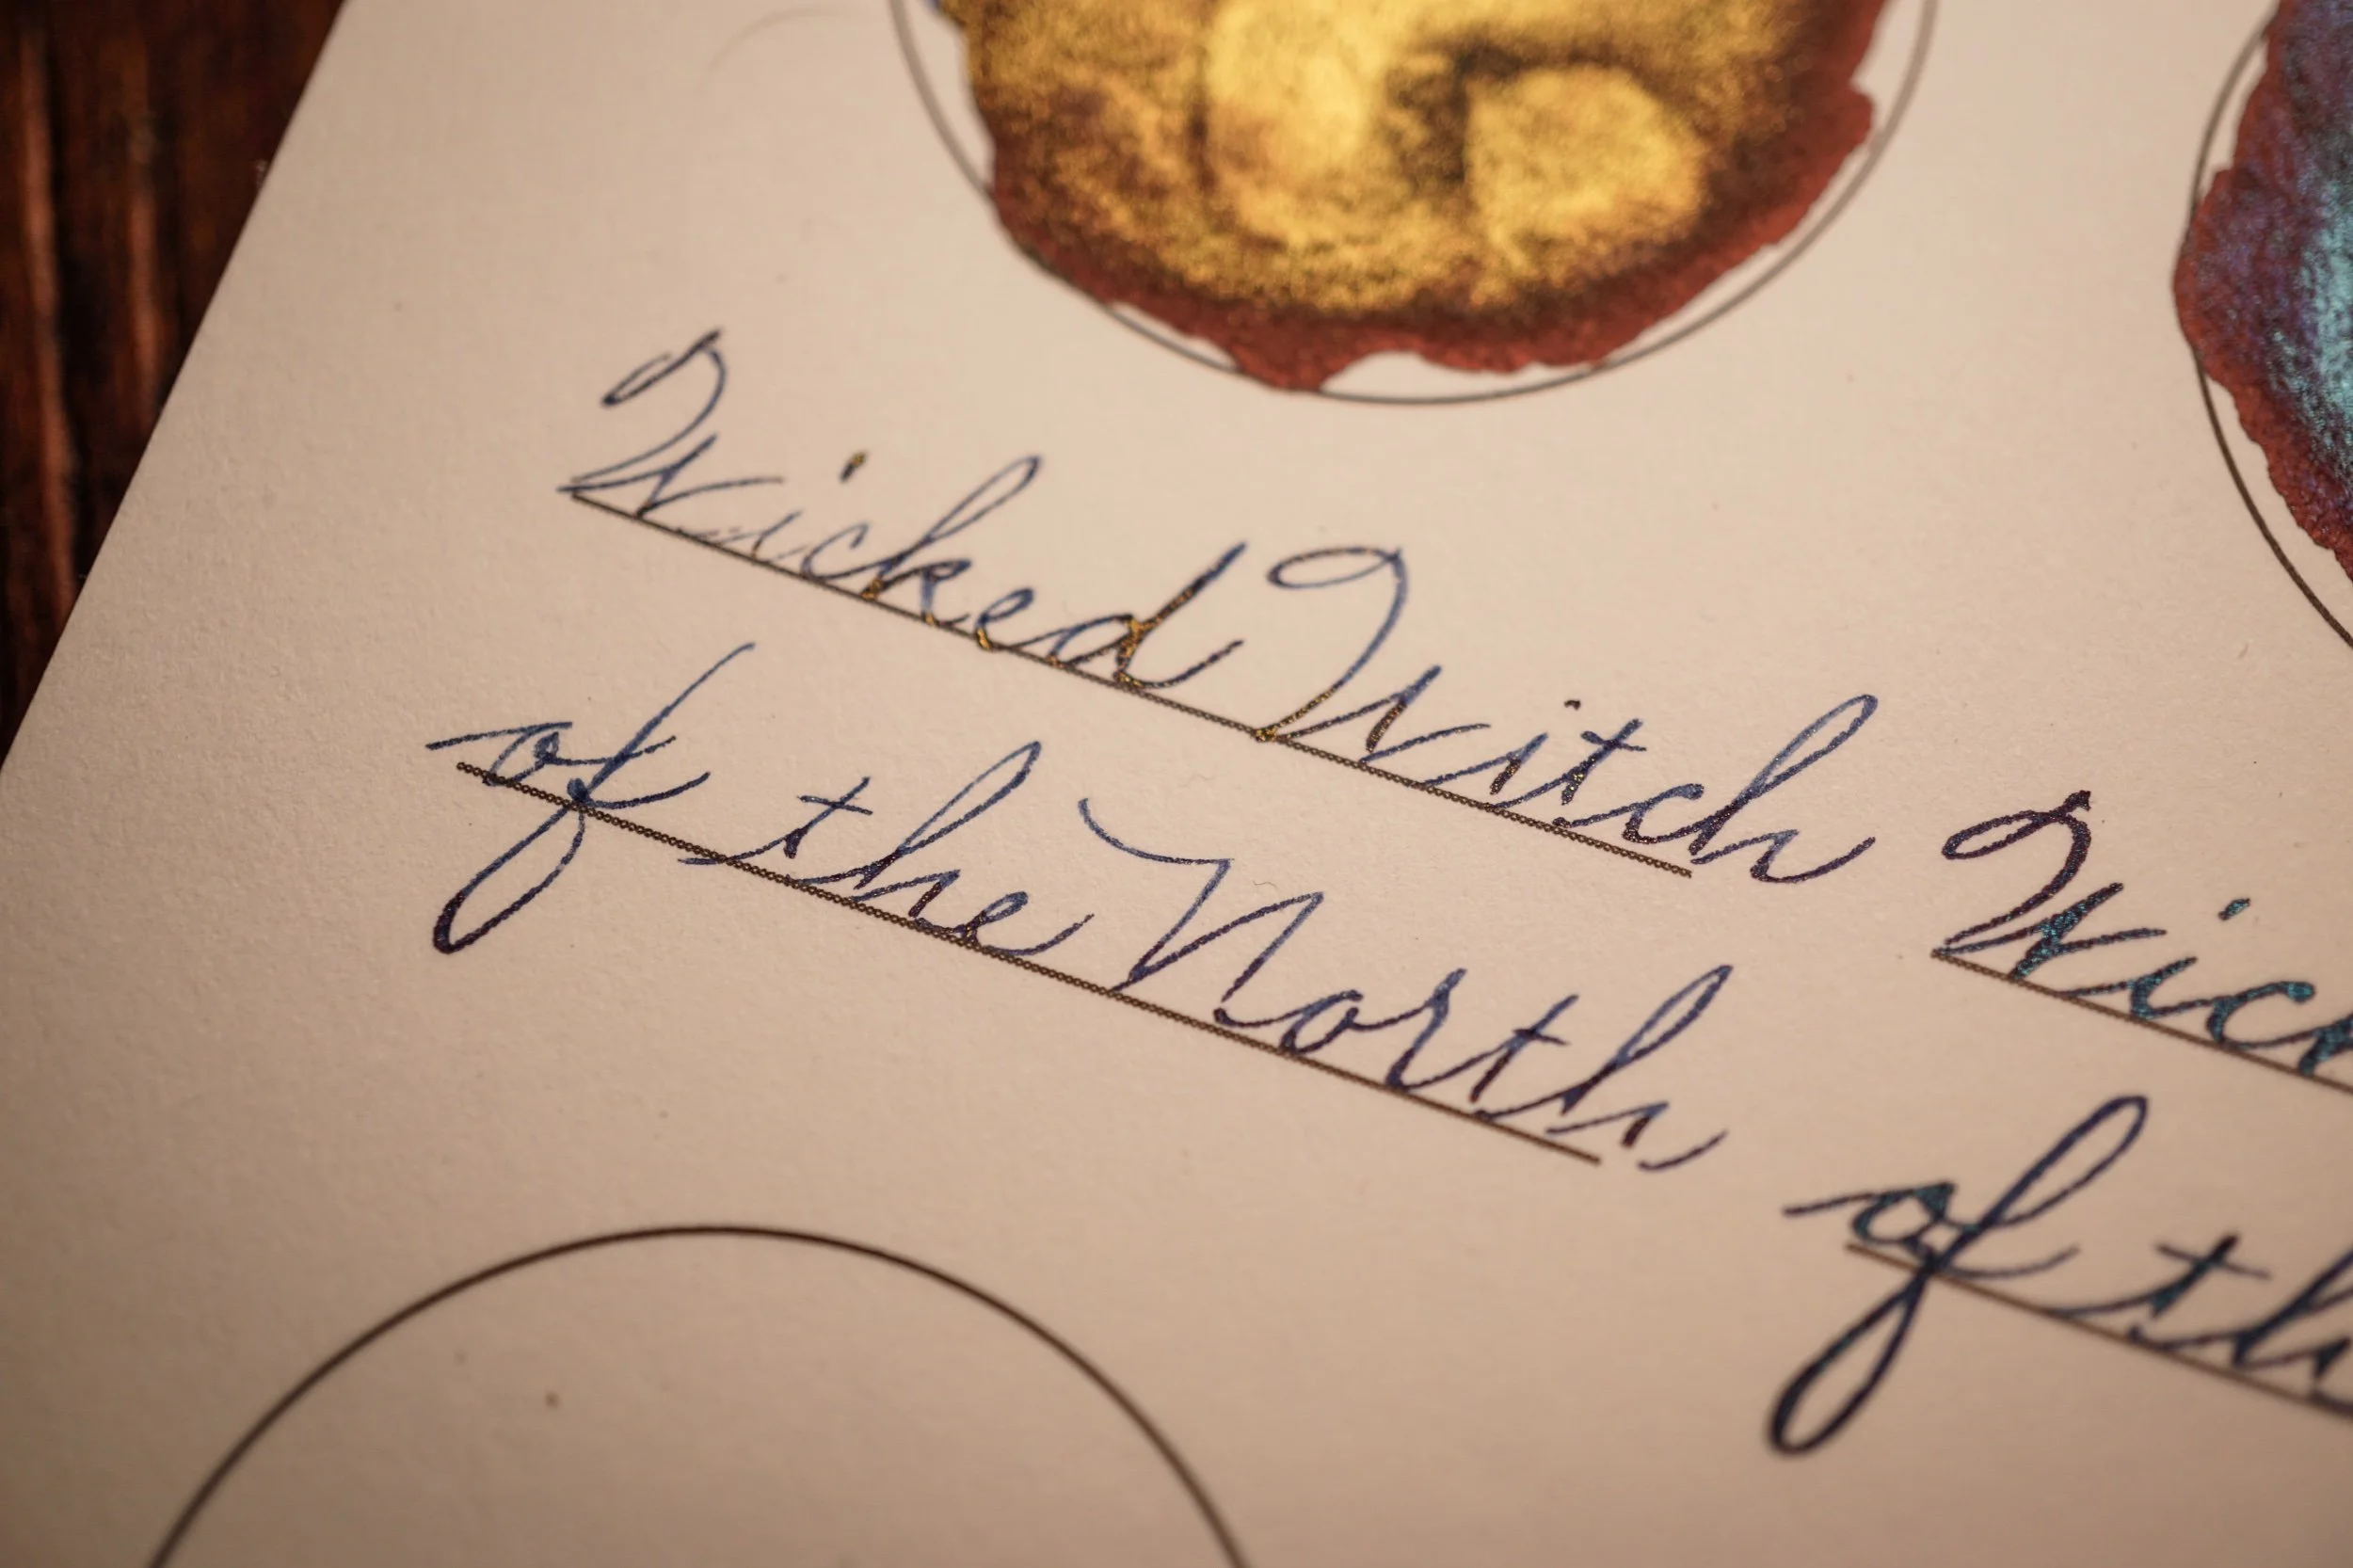 Wicked Witch
of the North
of